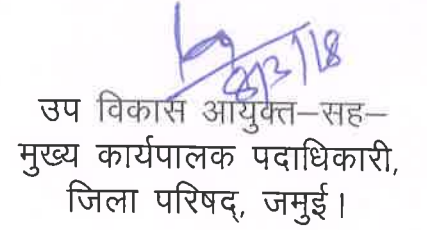 8/3/18
उप विकास आयुक्त–सह–
मुख्य कार्यपालक पदाधिकारी,
जिला परिषद्, जमुई।